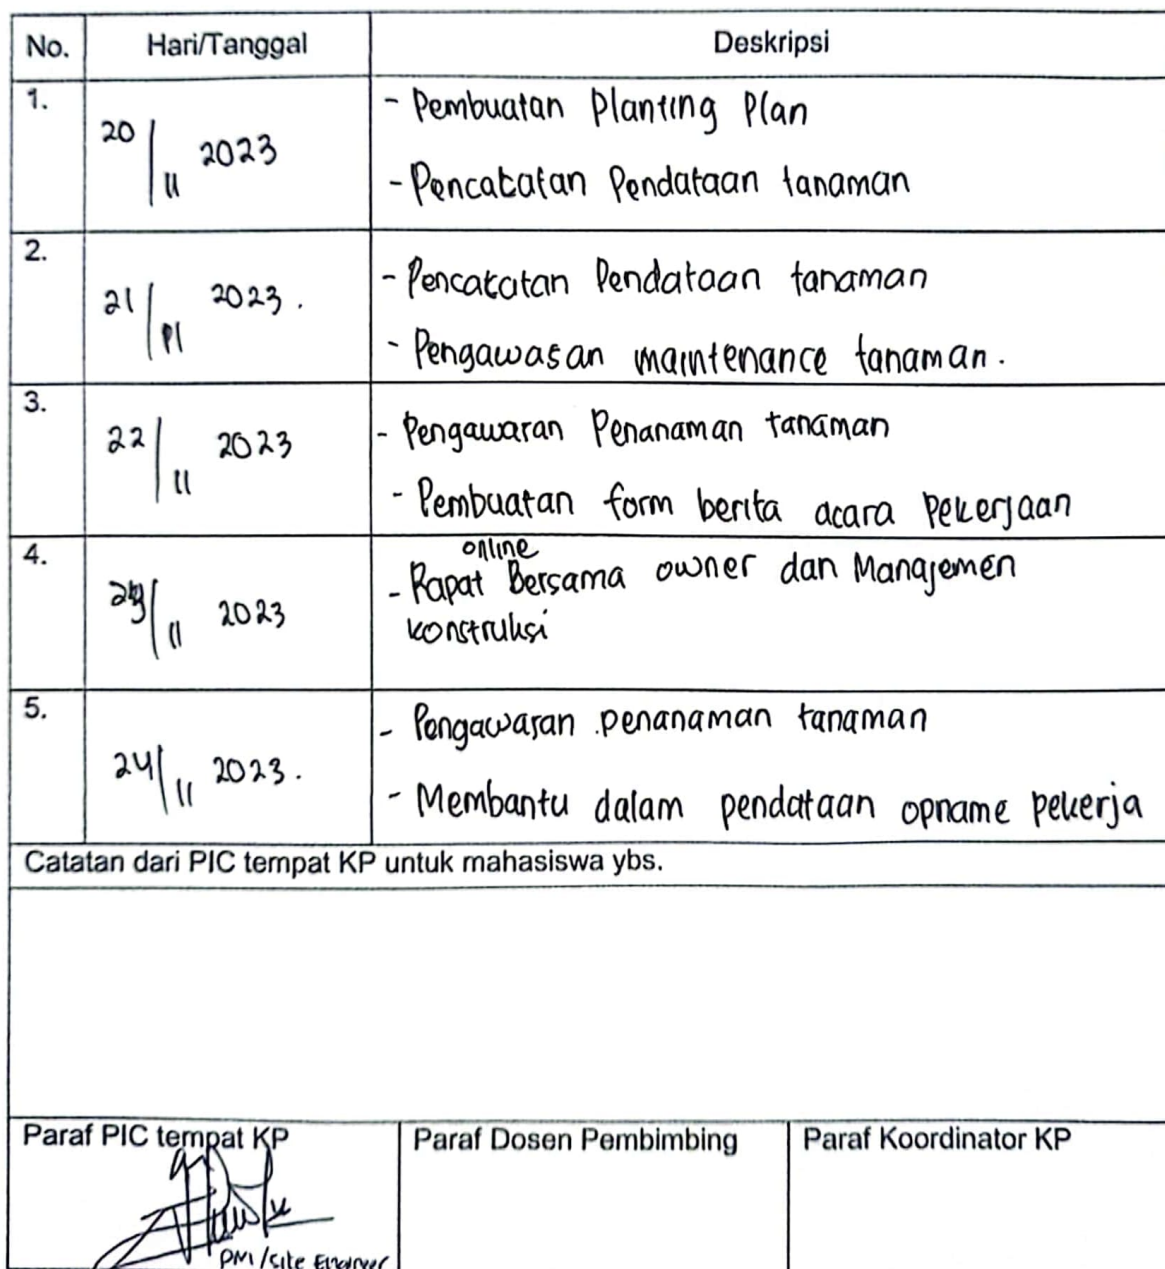 No. Hari/Tanggal Deskripsi
1. 20/11 2023
- Pembuatan Planting Plan
- Pencatatan Pendataan tanaman
2. 21/11 2023.
- Pencatatan Pendataan tanaman
- Pengawasan maintenance tanaman.
3. 22/11 2023
- Pengawasan Penanaman tanaman
- Pembuatan form berita acara pekerjaan
4. 23/11 2023
online
- Rapat Bersama owner dan Manajemen
konstruksi
5. 24/11 2023.
- Pengawasan penanaman tanaman
- Membantu dalam pendataan opname pekerja
Catatan dari PIC tempat KP untuk mahasiswa ybs.
Paraf PIC tempat KP Paraf Dosen Pembimbing Paraf Koordinator KP
PM/Site Engineer